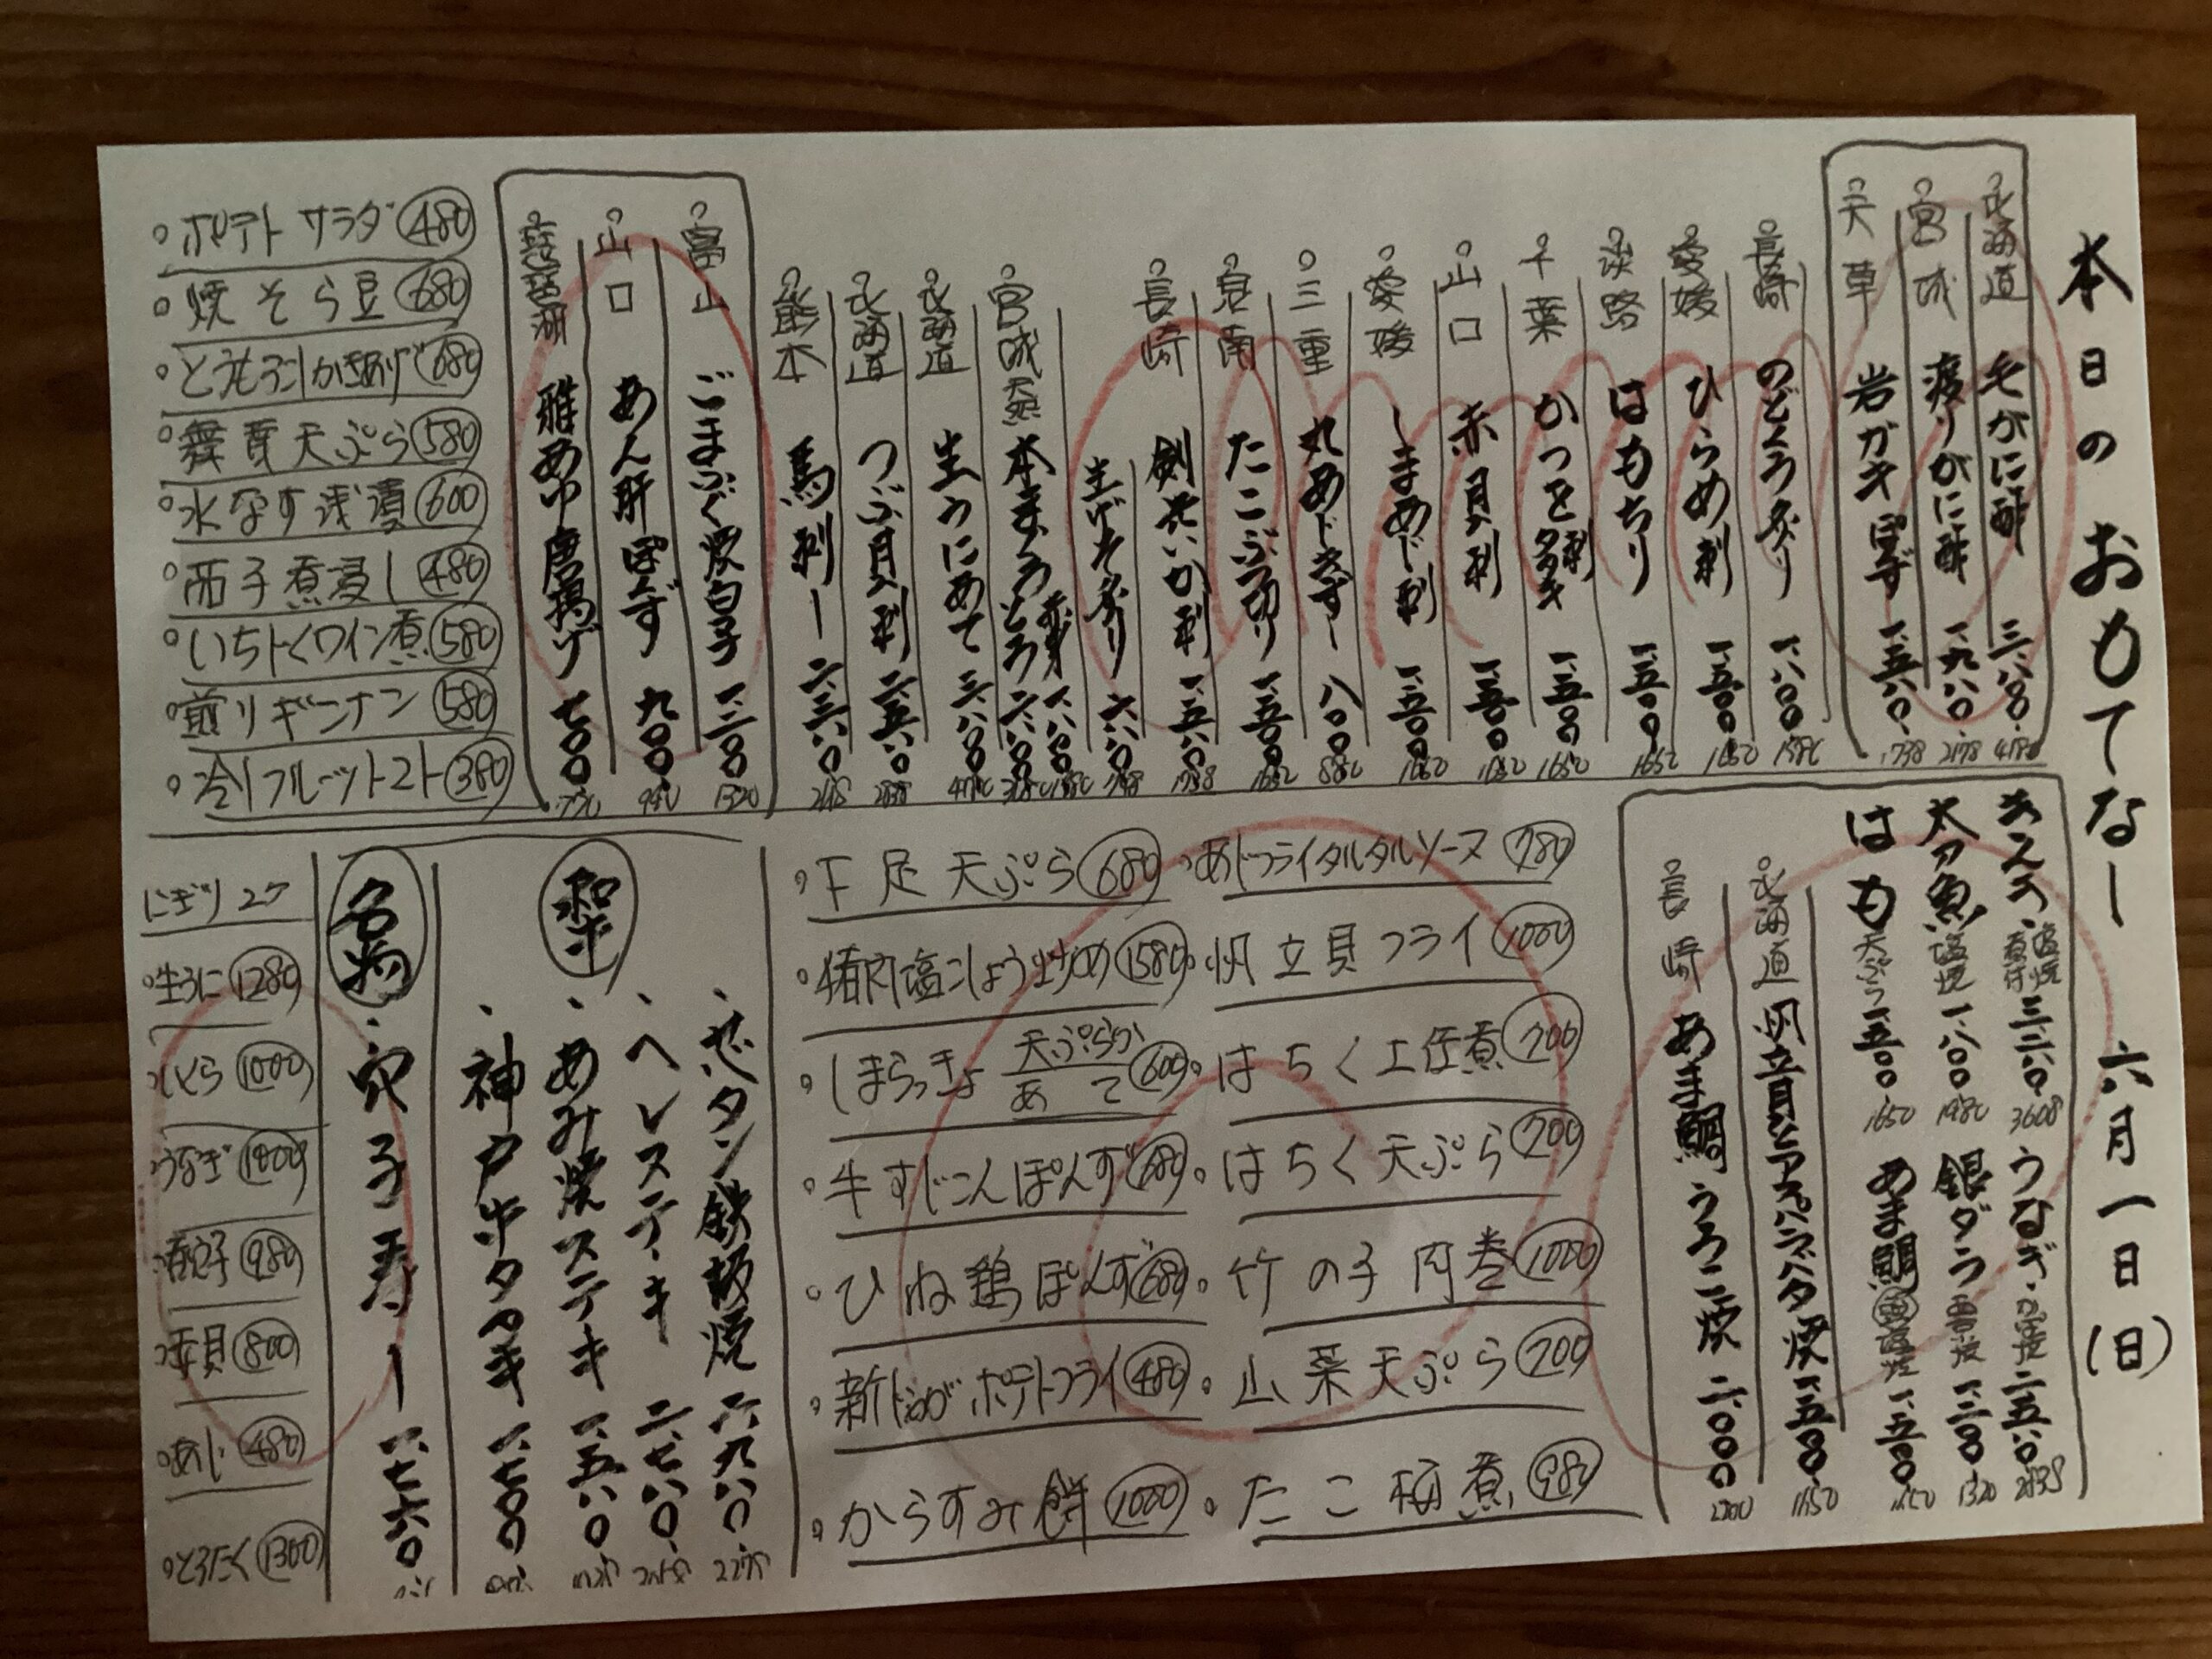 本日のおもてなし 六月一日(日)
北海道 毛がに酢 三、八〇〇
宮城 渡りがに酢 一、九八〇 2178
天草 岩ガキぽず 一、五八〇 1738
長崎 のどくろ炙り 一、八〇〇 1980
愛媛 ひらめ刺 一、五〇〇 1650
淡路 はもちり 一、五〇〇 1650
千葉 かつを刺 タタキ 一、五〇〇 1650
山口 赤貝刺 一、五〇〇 1650
愛媛 しまあじ刺 一、五〇〇 1650
三重 丸あじきずし 八〇〇 880
泉南 たこぶつ切り 一、五〇〇 1650
長崎 剣先いか刺 一、五八〇 1738
生げそ炙り 六八〇 748
宮城 天然 本まぐろ 赤身 一、八〇〇 1980
とろ 二、八〇〇
北海道 生うにあて 三、八〇〇
北海道 つぶ貝刺 二、五八〇 2838
熊本 馬刺し
富山 ごまふぐ焼白子 一、二〇〇 1320
山口 あん肝ぽんず 九〇〇
琵琶湖 稚あゆ唐揚げ 七〇〇 770
ポテトサラダ 480
焼そら豆 680
とうもろこしかきあげ 680
舞茸天ぷら 580
水なす浅漬 600
茄子煮浸し 480
いちじくワイン煮 580
煎りギンナン 580
冷しフルーツトマト 380
きんき 塩焼 煮付 三、二八〇 3608
太刀魚 塩焼 一、八〇〇 1980
はも 天ぷら 一、五〇〇 1650
うなぎ 白焼 二、五八〇 2838
銀ダラ 西京焼 一、二〇〇 1320
あま鯛 塩焼 一、五〇〇 1650
北海道 帆立貝とアスパラバター焼 一、五〇〇 1650
長崎 あま鯛うろこ焼 二、〇〇〇 2200
下足天ぷら 680
あじフライタルタルソース 780
猪肉塩こしょう炒め 1580
帆立貝フライ 1000
しまらっきょ 天ぷらか あて 600
はちく土佐煮 700
牛すじこんぽんず 680
はちく天ぷら 700
ひね鶏ぽんず 680
竹の子肉巻 1000
新じゃがポテトフライ 480
山菜天ぷら 700
からすみ餅 1000
たこ梅煮 980
和牛
・ヘレステーキ 二、七八〇
・あみ焼ステーキ 一、五八〇
・神戸牛タタキ 一、七〇〇
名物
・穴子寿し 一、七六〇
にぎり 2ケ
生うに 1280
いくら 1000
うなぎ 1000
煮穴子 980
赤貝 800
あじ 480
とろたく 1300